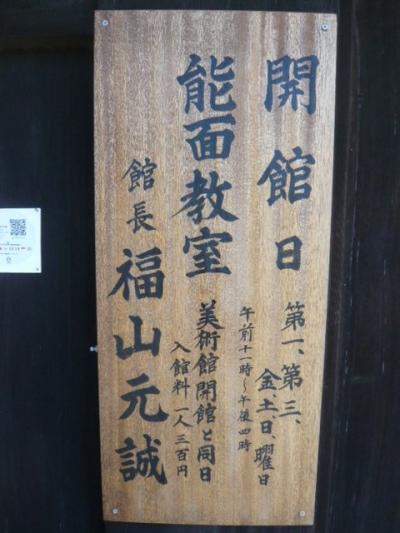 開館日
第一、第三、
金、土、日、曜日
午前十一時～午後四時
能面教室
美術館開館と同日
入館料 一人三百円
館長 福山元誠